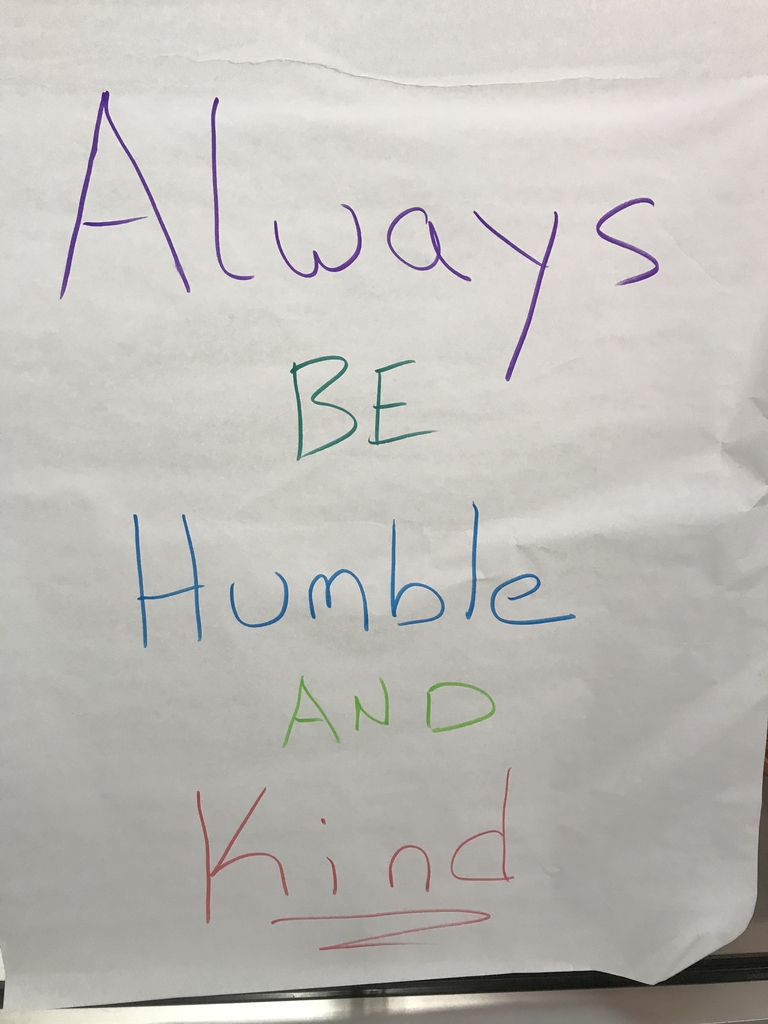 Always
BE
Humble
AND
Kind